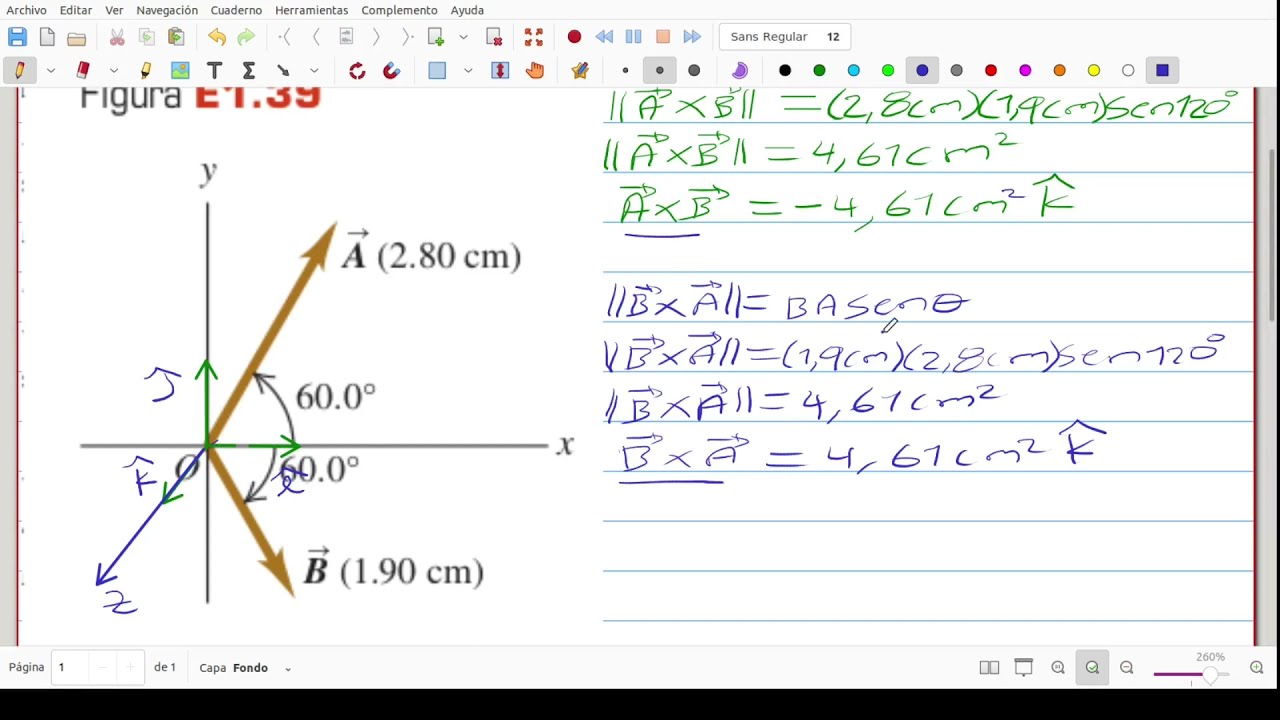 Archivo Editar Ver Navegación Cuaderno Herramientas Complemento Ayuda
Sans Regular 12
Figura E1.39
y
A⃗ (2.80 cm)
60.0°
x
O
60.0°
B⃗ (1.90 cm)
k̂
z
||A⃗×B⃗|| = (2,8cm)(1,9cm)sen120°
||A⃗×B⃗|| = 4,61cm²
A⃗×B⃗ = -4,61cm² k̂
||B⃗×A⃗|| = BAsenθ
||B⃗×A⃗|| = (1,9cm)(2,8cm)sen120°
||B⃗×A⃗|| = 4,61cm²
B⃗×A⃗ = 4,61cm² k̂
Página 1 de 1 Capa Fondo
260%